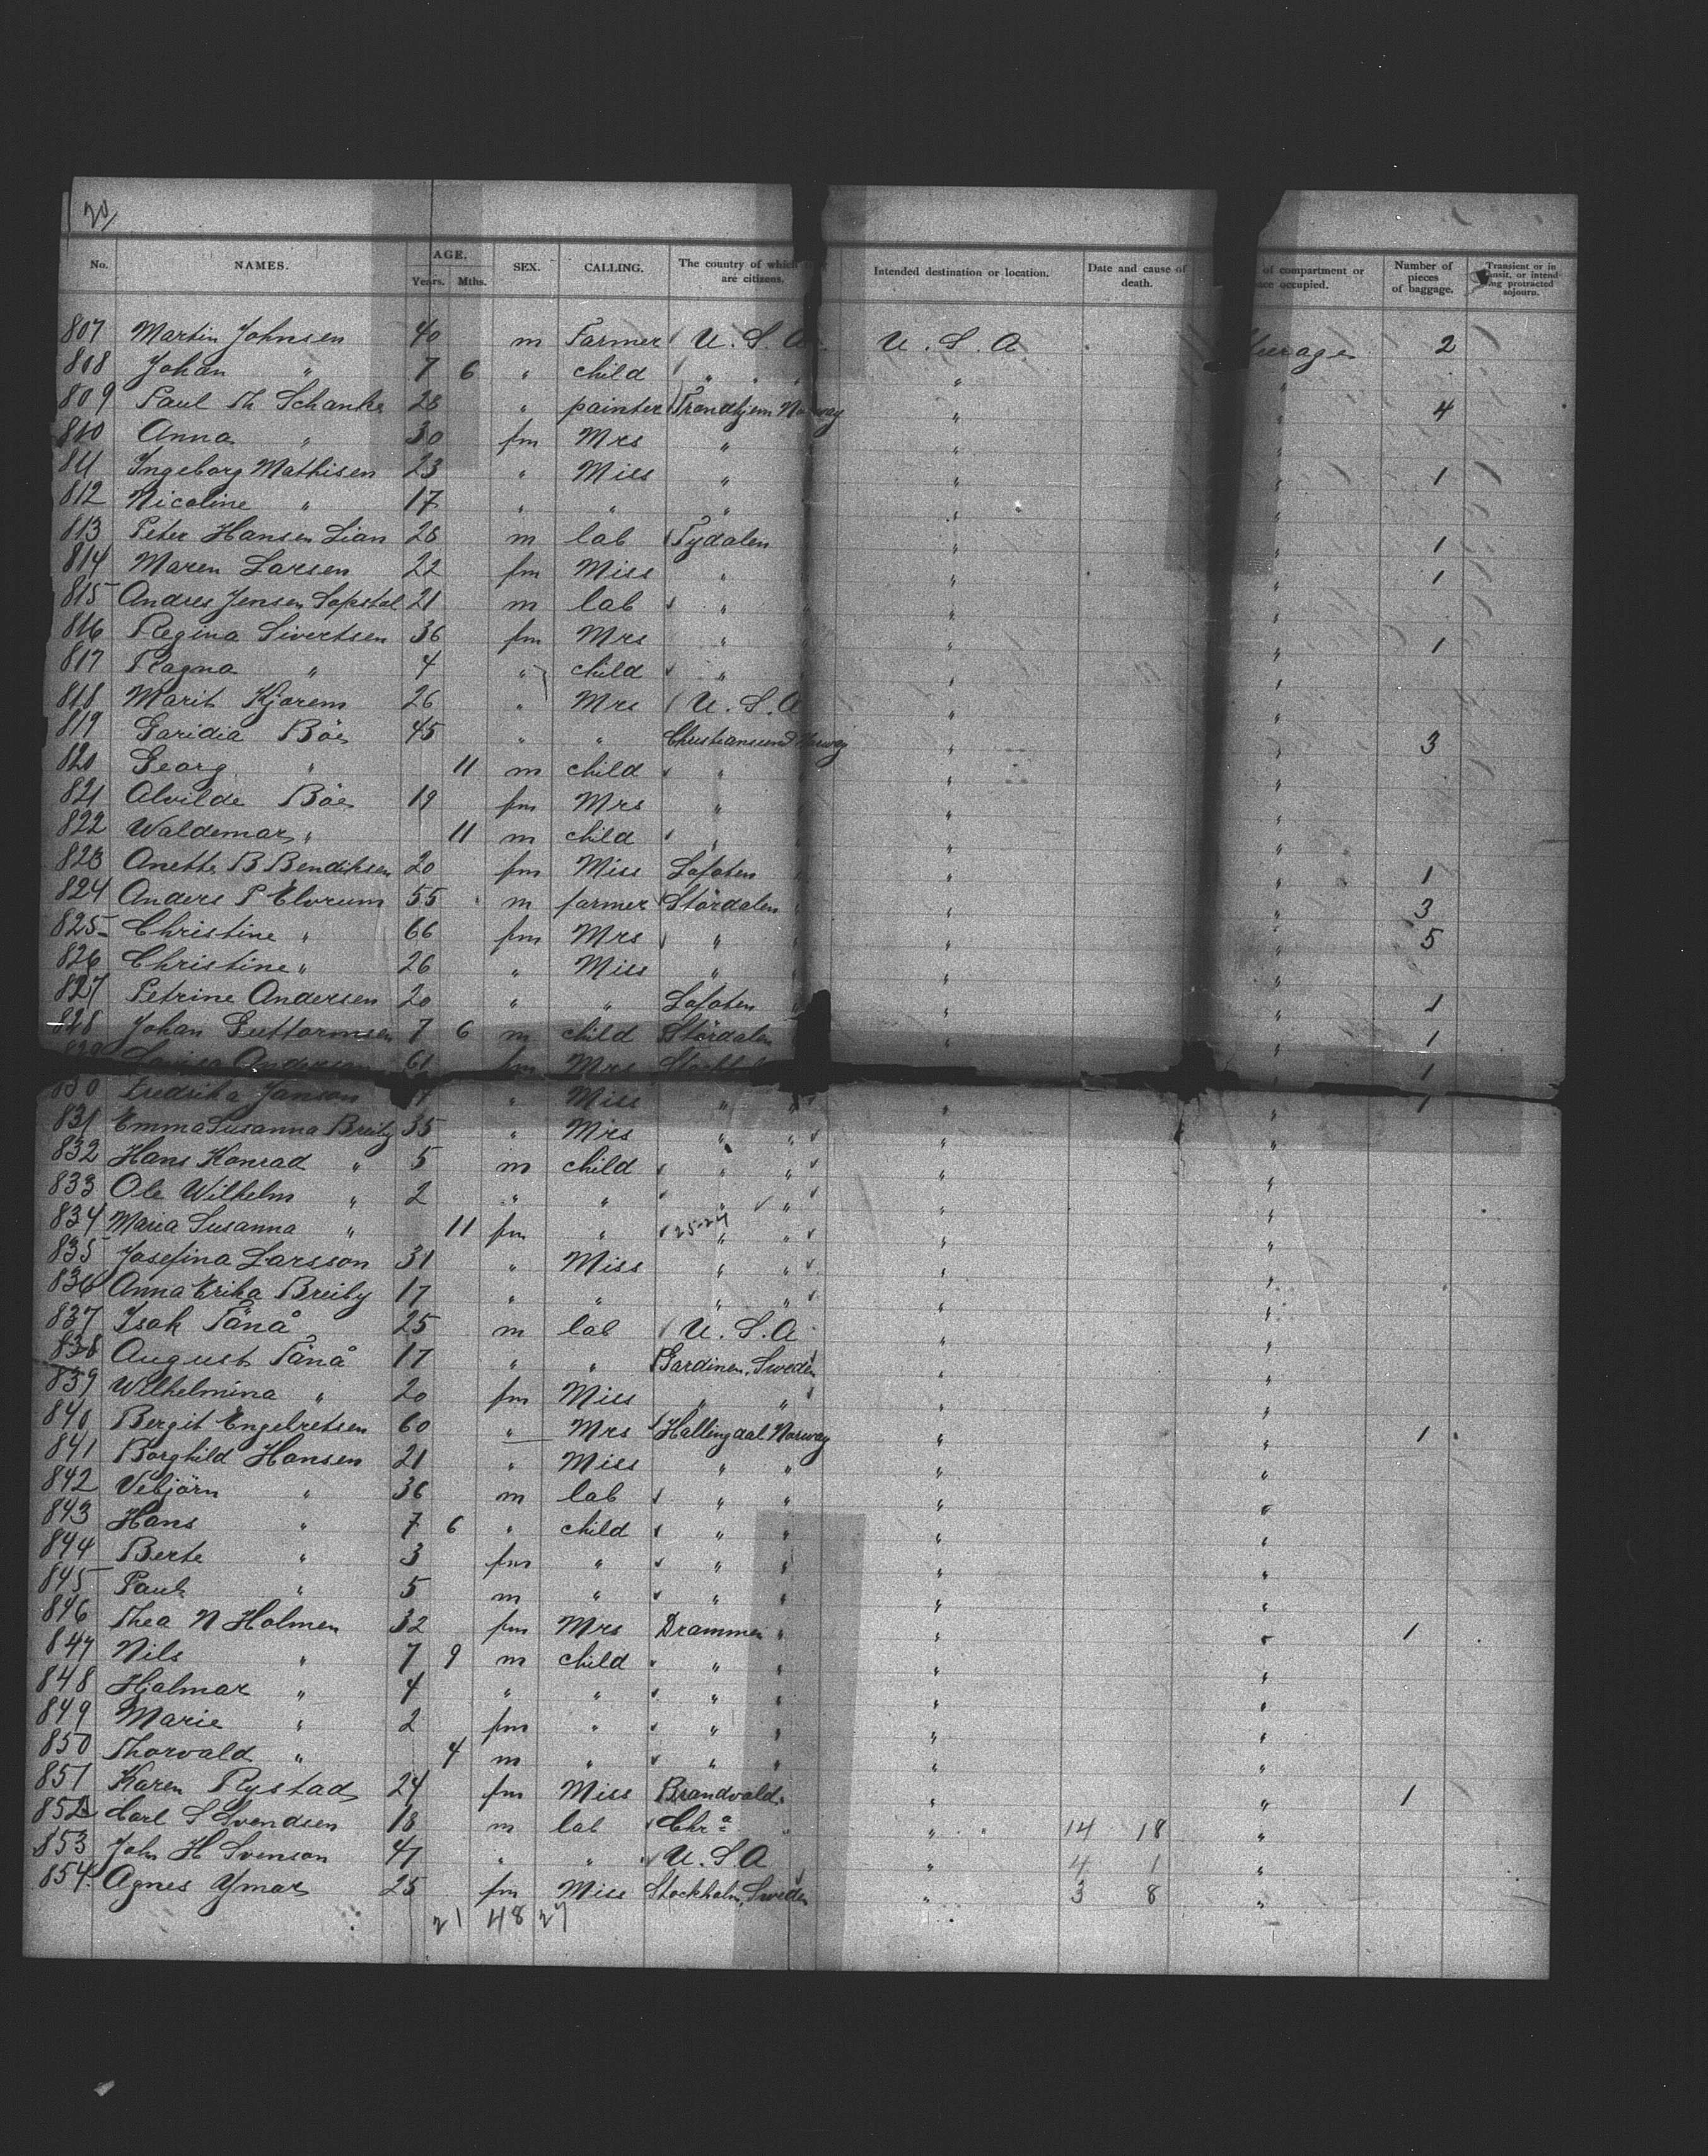 20/
No. NAMES. AGE. Years. Mths. SEX. CALLING. The country of which are citizens. Intended destination or location. Date and cause of death. of compartment or occupied. Number of pieces of baggage. Transient or in transit, or intending protracted sojourn.
807 Martin Johnsen 40 m Farmer U.S.A. U.S.A. 2
808 Johan " 7 6 " child " " " " "
809 Paul Th Schanke 28 " painter Trondhjem Norway " " 4
810 Anna " 30 fm Mrs " " "
811 Ingeborg Mathisen 23 " Miss " " " 1
812 Nicoline " 17 " " " " "
813 Peter Hansen Lian 28 m lab Tydalen " " 1
814 Maren Larsen 22 fm Miss " " " 1
815 Andres Jensen 21 m lab " " "
816 Regina Sivertsen 36 fm Mrs " " " 1
817 Ragna " 4 " child " " "
818 Marit Kjorem 26 " Mrs U.S.A " "
819 Böe 45 " " Christiansund Norway " " 3
820 Georg " 11 m child " " "
821 Alvilde Böe 19 fm Mrs " " "
822 Waldemar " 11 m child " " "
823 Anette B Bendiksen 20 fm Miss Lofoten " " " 1
824 Anders P Elvrum 55 m farmer Stördalen " " " 3
825 Christine " 66 fm Mrs " " " 5
826 Christine " 26 " Miss " " "
827 Petrine Andersen 20 " " Lofoten " " " 1
828 Johan Guttormsen 7 6 m child Stördalen " " 1
829 Anderson 61 fm Mrs " 1
830 Fredrika Janson " Miss " " " " 1
831 Emma Susanna Breiby 35 " Mrs " " " "
832 Hans Konrad " 5 m child " " " "
833 Ole Wilhelm " 2 " " " " " "
834 Maria Susanna " 11 fm " " " " "
835 Josefina Larsson 31 " Miss " " " "
836 Anna Erika Breiby 17 " " " " " "
837 Isak Tänå 25 m lab U.S.A " "
838 August Tänå 17 " " Sweden " "
839 Wilhelmina " 20 fm Miss " " " "
840 Bergit Engebretsen 60 " Mrs Hallingdal Norway " " 1
841 Borghild Hansen 21 " Miss " " " "
842 Vebjörn " 36 m lab " " " "
843 Hans " 7 6 " child " " " "
844 Berte " 3 fm " " " " "
845 Paul " 5 m " " " " "
846 Thea N Holmen 32 fm Mrs Drammen " " " 1
847 Nils " 7 9 m child " " " "
848 Hjalmar " 4 " " " " " "
849 Marie " 2 fm " " " " "
850 Thorvald " 4 m " " " " "
851 Karen Rystad 24 fm Miss Brandvold " " 1
852 Carl S Svendsen 18 m lab Chra " " 14 18 "
853 John H Svenson 41 " " U.S.A " 4 1 "
854 Agnes Ymar 25 fm Miss Stockholm, Sweden " 3 8 "
21 48 27